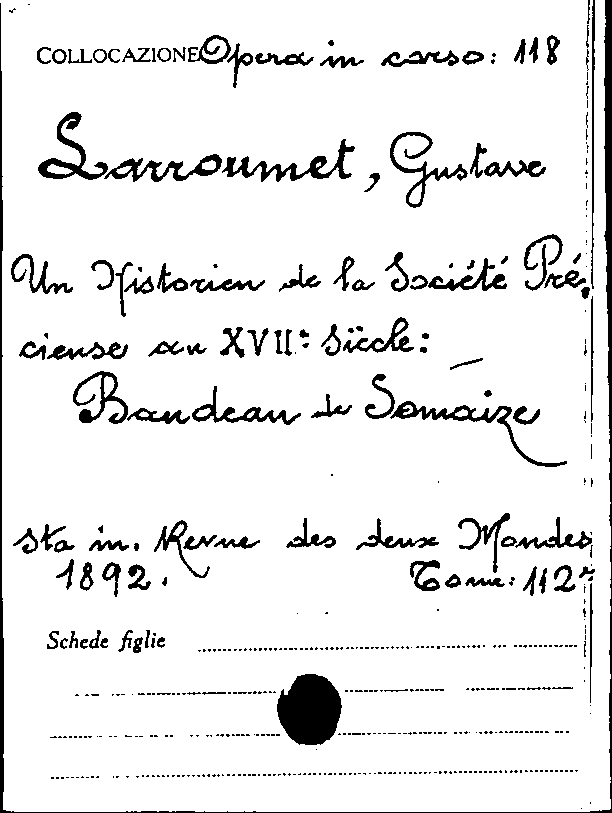 COLLOCAZIONE Opera in corso: 118
Larroumet, Gustave
Un Historien de la Société Pré-
cieuse au XVII: Siècle:
Baudeau de Somaize
Sta in. Revue des deux Mondes
1892. Tome: 112
Schede figlie